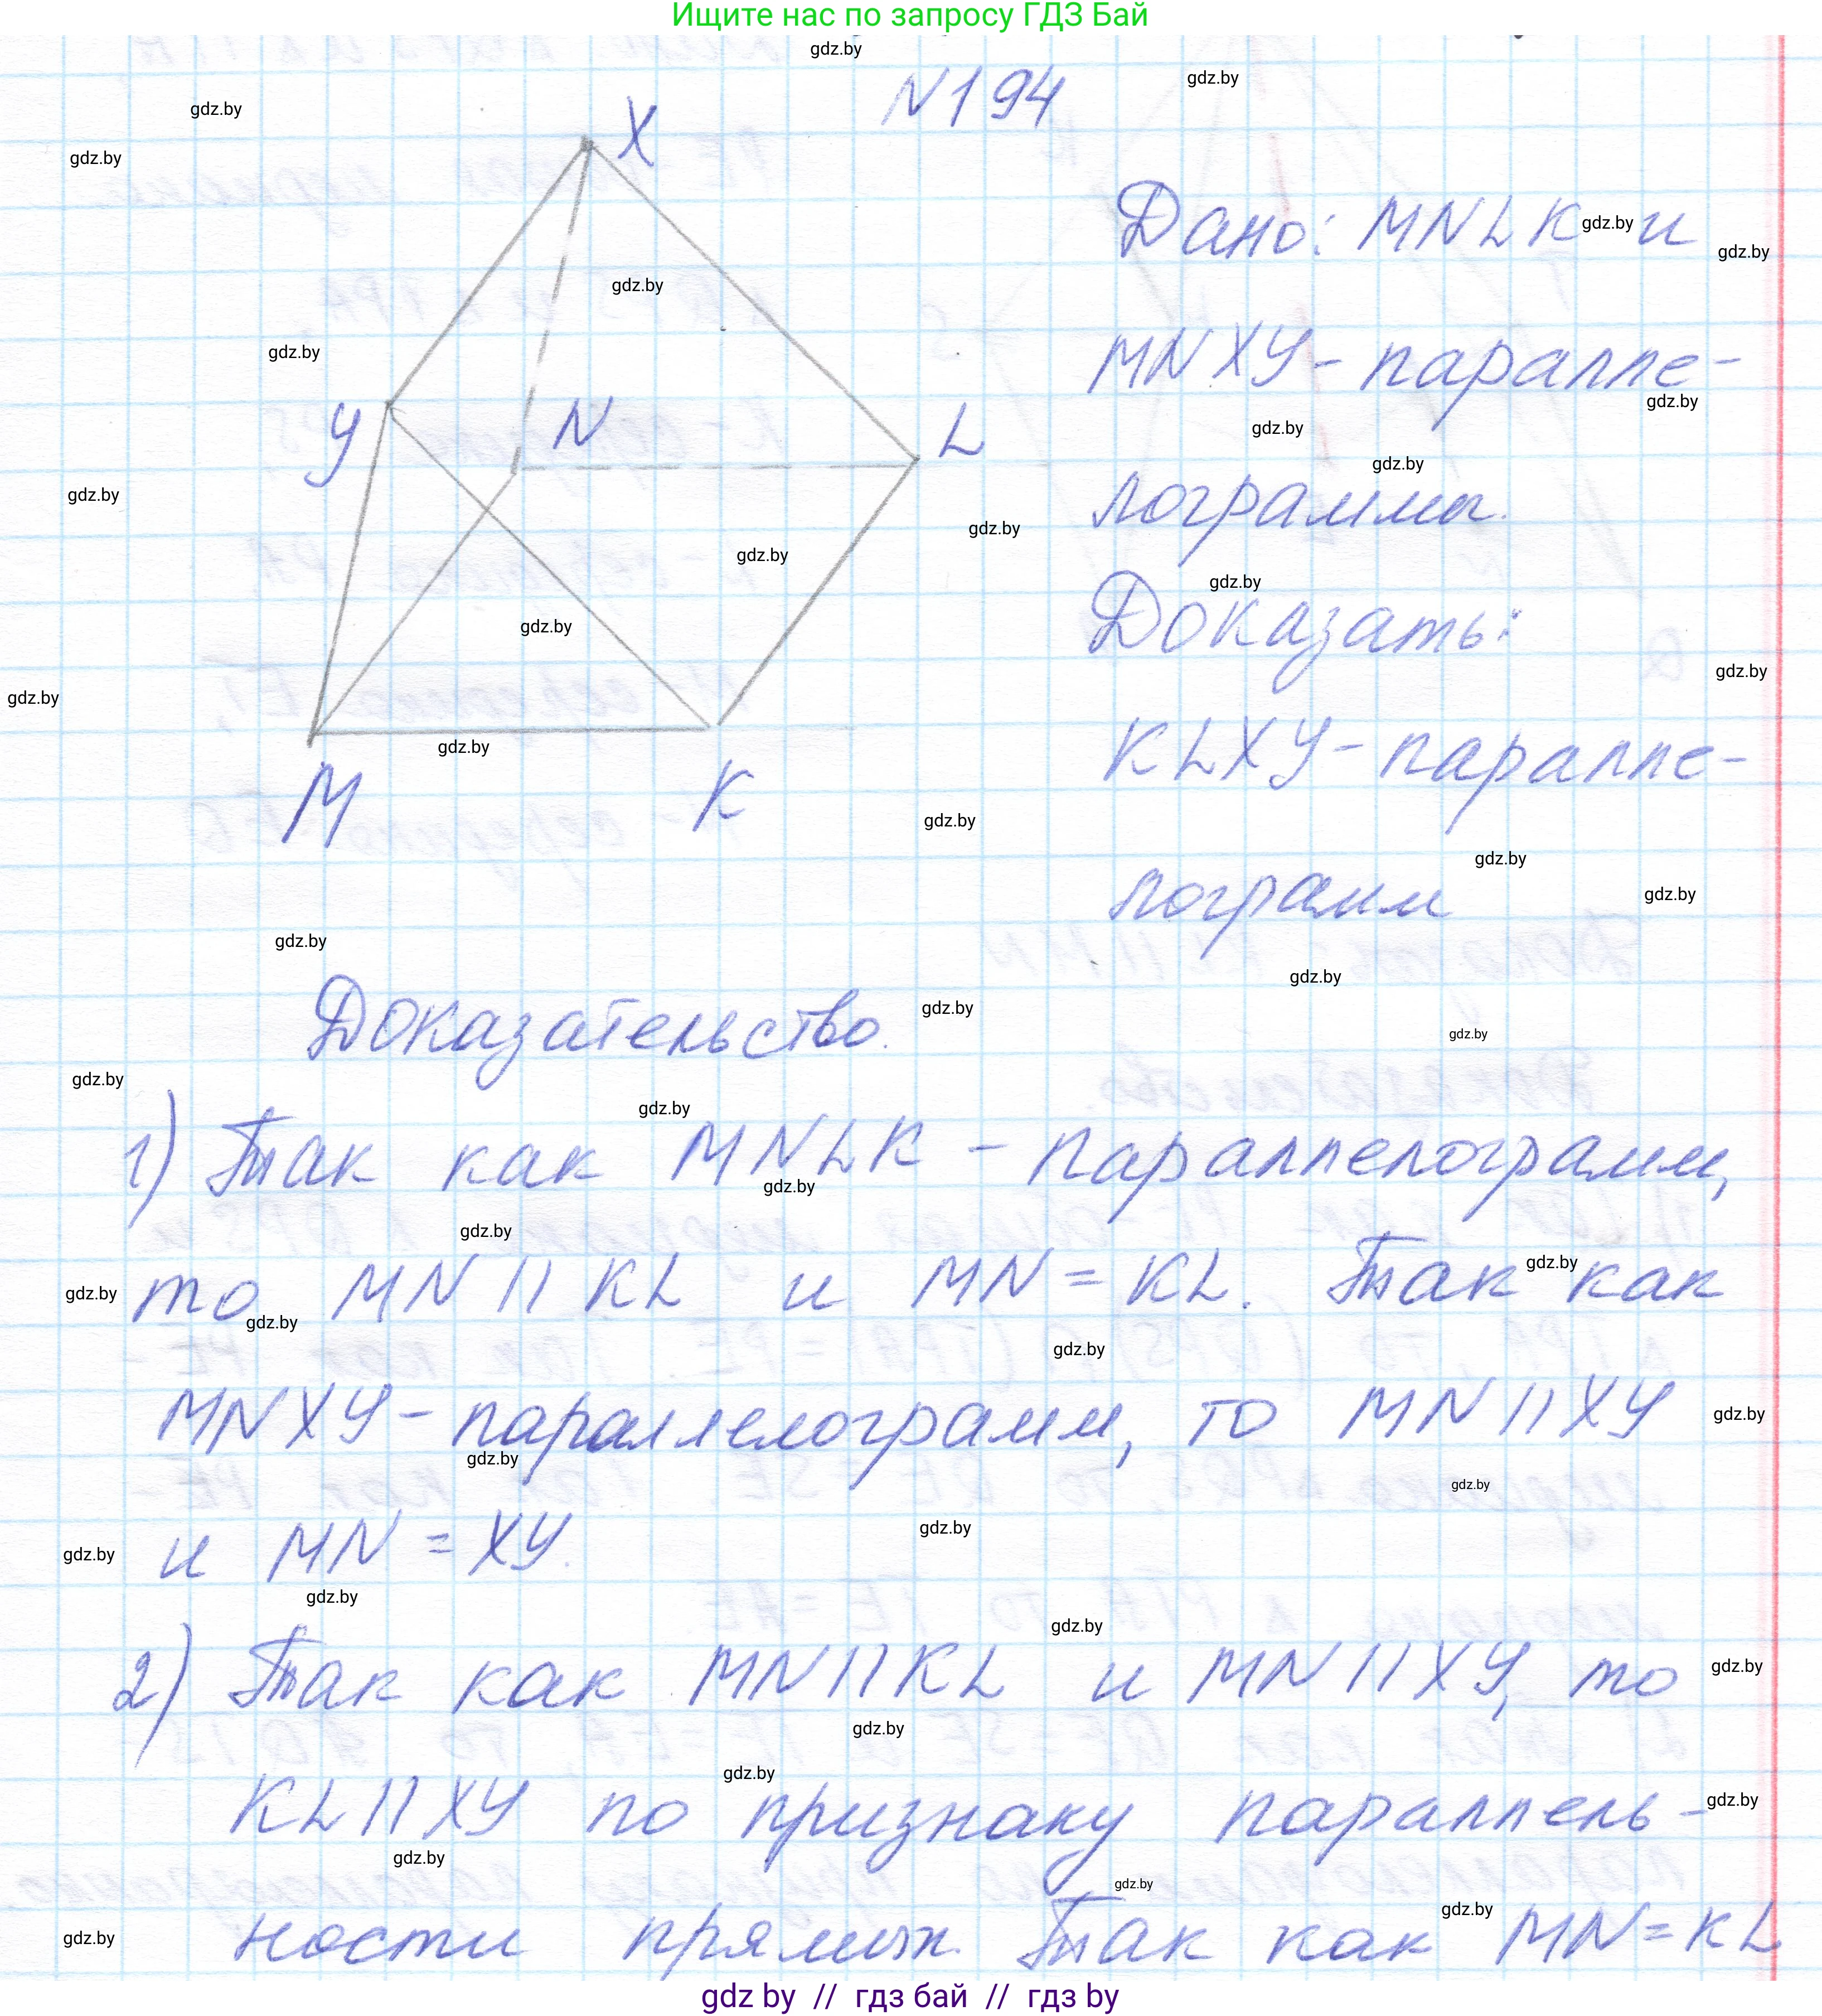 Ищите нас по запросу ГДЗ Бай
N194
X
Дано: MNLK и
MNXY - паралле-
лограммы.
Y N L
Доказать:
KLXY - паралле-
лограмм
M K
Доказательство.
1) Так как MNLK - параллелограмм,
то MN || KL и MN = KL. Так как
MNXY - параллелограмм, то MN || XY
и MN = XY.
2) Так как MN || KL и MN || XY, то
KL || XY по признаку параллель-
ности прямых. Так как MN = KL
gdz by // гдз бай // гдз by